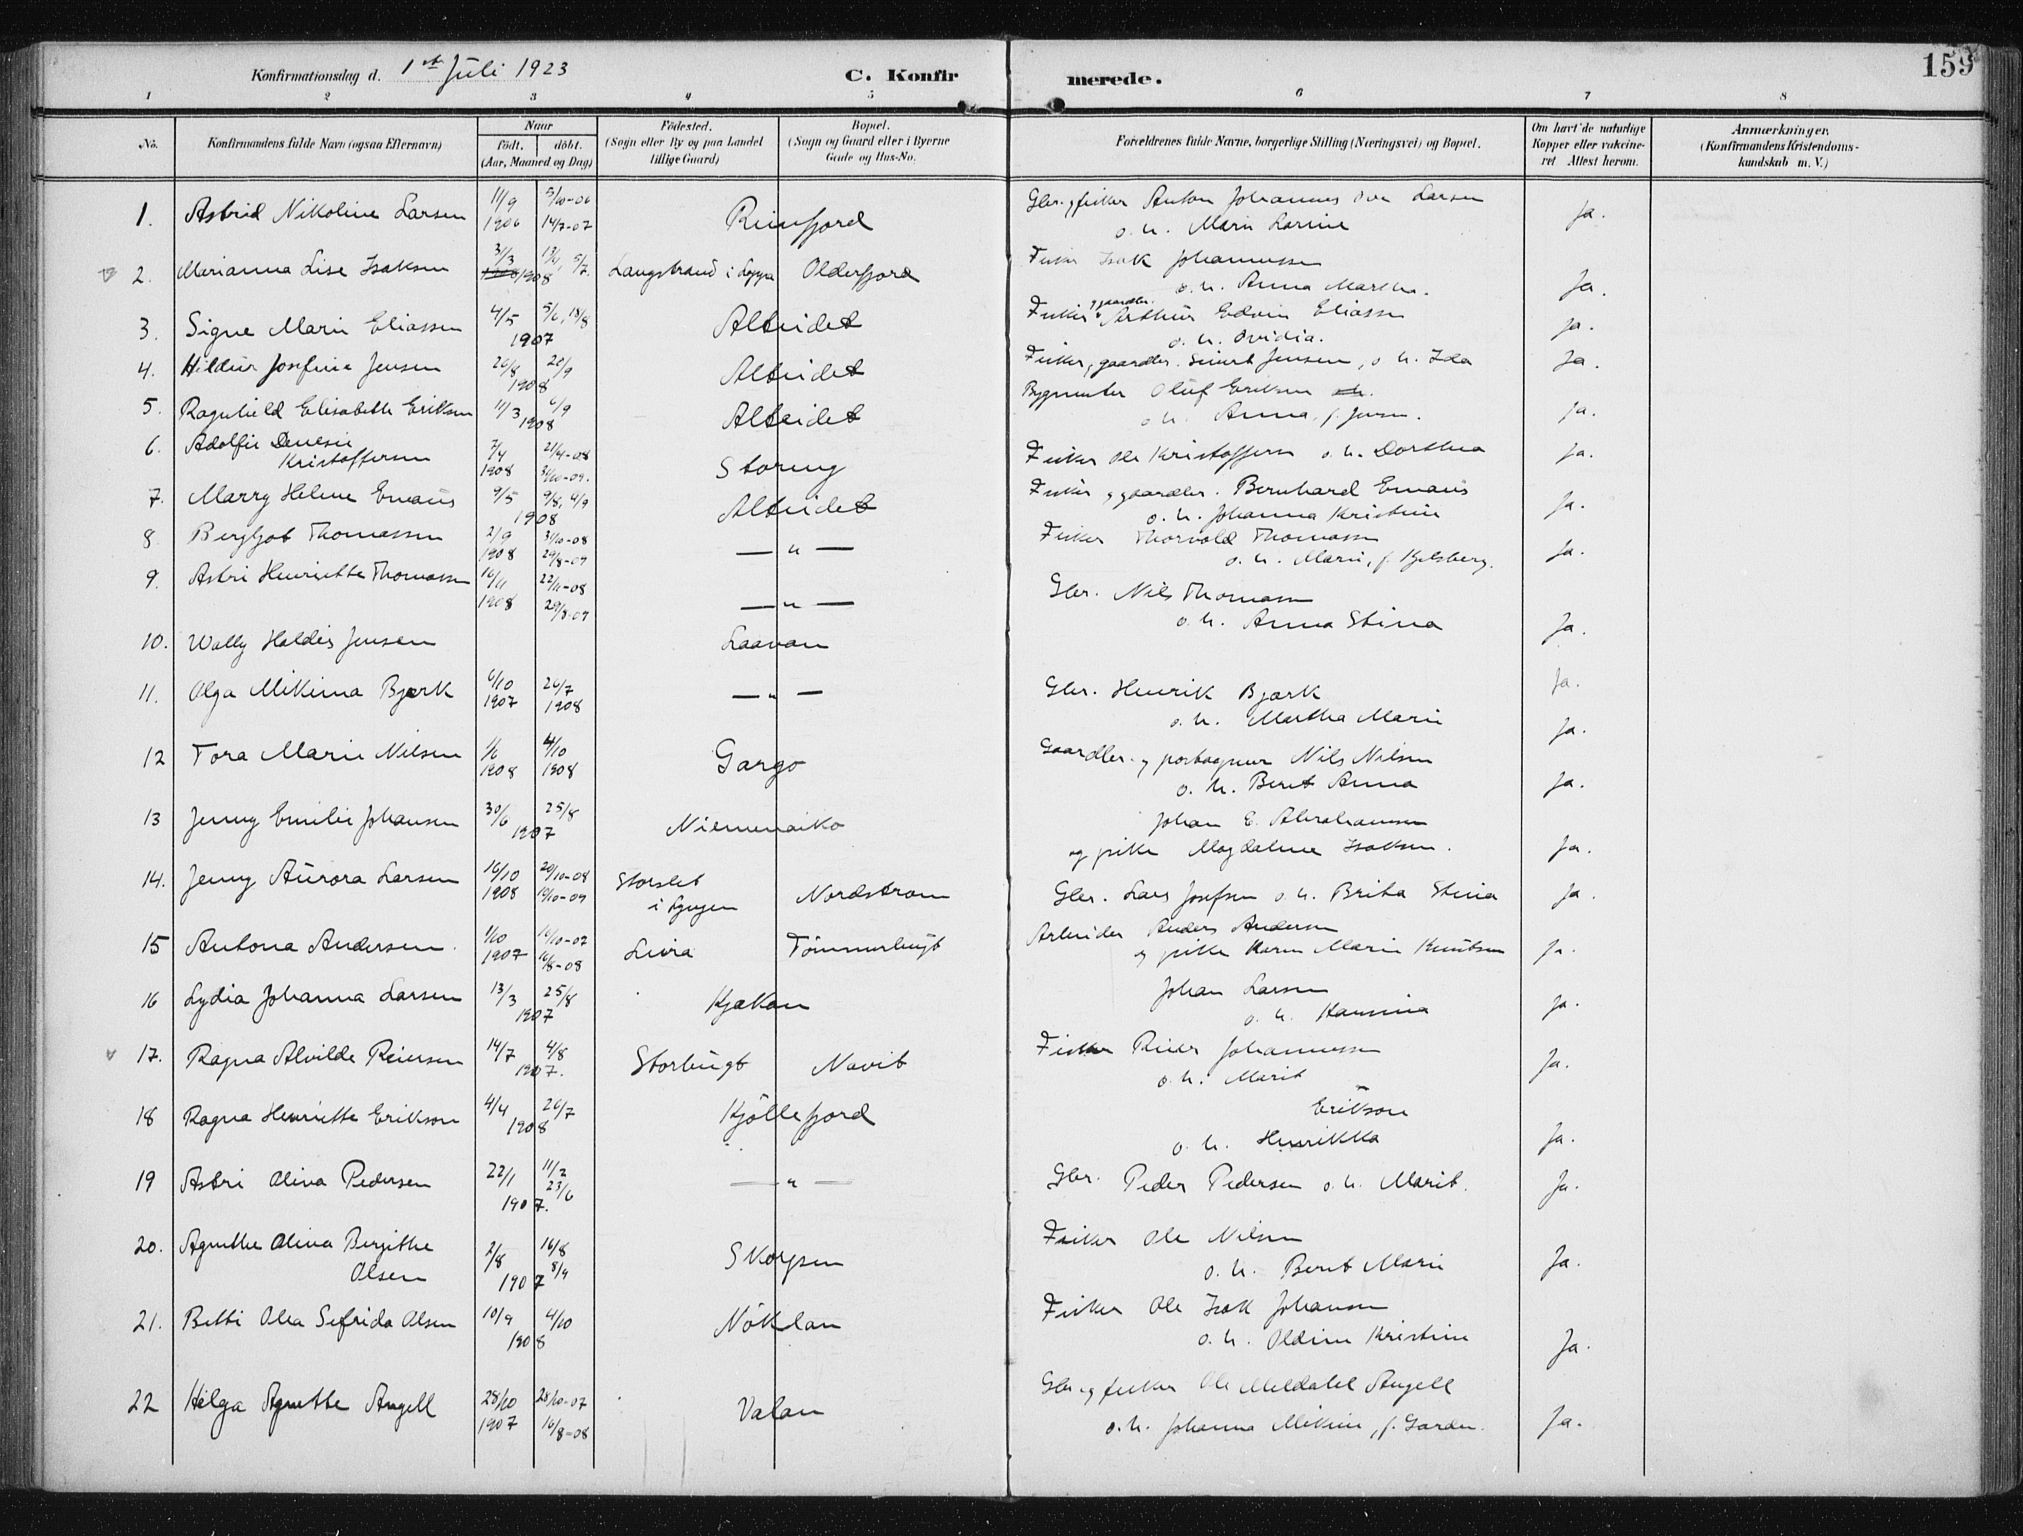 Konfirmationsdag d. 1st Juli 1923 C. Konfirmerede. 159
1 2 3 4 5 6 7 8
No. Konfirmandens fulde Navn (ogsaa Efternavn) Naar födt. döbt. (Aar, Maaned og Dag) Födested. (Sogn eller By og paa Landet tillige Gaard) Bopæl. (Sogn og Gaard eller i Byerne Gade og Hus-No. Forældrenes fulde Navne, borgerlige Stilling (Næringsvei) og Bopæl. Om havt de naturlige Kopper eller vakcineret Attest herom. Anmærkninger. (Konfirmandens Kristendomskundskab m. V.)
1. Astrid Nikoline Larsen 11/9 1906 5/10-06 14/7-07 Reinfjord Gbr. og fisker Anton Johannes Larsen
o. h. Marie Larine Ja.
2. Marianna Lise Isaksen 3/3 1908 Langstrand i Loppa Olderfjord Fisker Isak Johannessen
o. h. Anna Martha. Ja.
3. Signe Marie Eliassen 4/5 5/6, 18/8 1907 Alteidet Fisker og gaardbr. Arthur Edvin Eliassen
o. h. Ovidia. Ja.
4. Hildur Josefine Jensen 26/8 20/9 1908 Alteidet Fisker, gaardbr. Sivert Jensen, o. h. Ida Ja.
5. Ragnhild Elisabeth Eriksen 11/3 6/9 1908 Alteidet Bygmester Oluf Eriksen
o. h. Anna, f. Jensen. Ja.
6. Adolfie Denesie
Kristoffersen 7/4 1908 21/4-08 Storeng Fisker Ole Kristoffersen o. h. Dorthea Ja.
7. Marry Helene Emaus 9/5 9/8, 4/9 1908 Alteidet Fisker og gaardbr. Bernhard Emaus
o. h. Johanna Kristine Ja.
8. Bergljot Thomassen 2/9 1908 31/10-08 29/8-09 — " — Fisker Thorvald Thomassen
o. h. Marie, f. Kjelsberg. Ja.
9. Astri Henriette Thomassen 16/11 1908 22/11-08 29/8-09 — " — Gbr. Nils Thomassen
o. h. Anna Stina Ja.
10. Wally Haldis Jensen Laavan Ja.
11. Olga Mikima Bjørk 6/10 1907 26/7 1908 — " — Gbr. Henrik Bjørk
o. h. Martha Marie Ja.
12 Tora Marie Nilsen 1/6 1908 4/10 1908 Gargo Gaardbr. og postaapner Nils Nilsen
o. h. Berit Anna Ja.
13 Jenny Emilie Johansen 30/6 25/8 1907 Niemenaiko Johan E. Abrahamsen
og pike Magdalene Isaksen. Ja.
14. Jenny Aurora Larsen 16/10 1908 20/10-08 10/10-09 Storslet
i Lyngen Nordstrøm Gbr. Lars Josefsen o. h. Brita Stina Ja.
15 Antona Andersen. 1/10 1907 16/10-07 16/8-08 Livia Tømmerbugt Arbeider Anders Andersen
og pike Karen Marie Knutsen Ja.
16 Lydia Johanna Larsen 13/3 25/8 1907 Kjækan Johan Larsen
o. h. Hansina Ja.
17. Ragna Alvilde Reiersen 14/7 4/8 1907. Storbugt Navit Fisker Reier Johannessen
o. h. Marit Ja.
18 Ragna Henriette Erikson 4/4 26/7 1908 Kjöllefjord Erikson
o. h. Henrikka Ja.
19 Astri Oliva Pedersen 22/1 11/2 23/6 1907. — " — Gbr. Peder Pedersen o. h. Marit. Ja.
20. Agnethe Oliva Birgitte
Olsen 2/8 16/8 8/9 1907 Skorpen Fisker Ole Nilsen
o. h. Berit Marie Ja.
21. Betti Olea Sefrida Olsen 10/9 4/10 1908 Nöklan Fisker Ole Isak Johansen
o. h. Oldine Kristine Ja.
22 Helga Agnethe Angell 28/10 1907 28/10-07 16/8-08 Valan Gbr. og fisker Ole Meldahl Angell
o. h. Johanna Mikine, f. Garden. Ja.